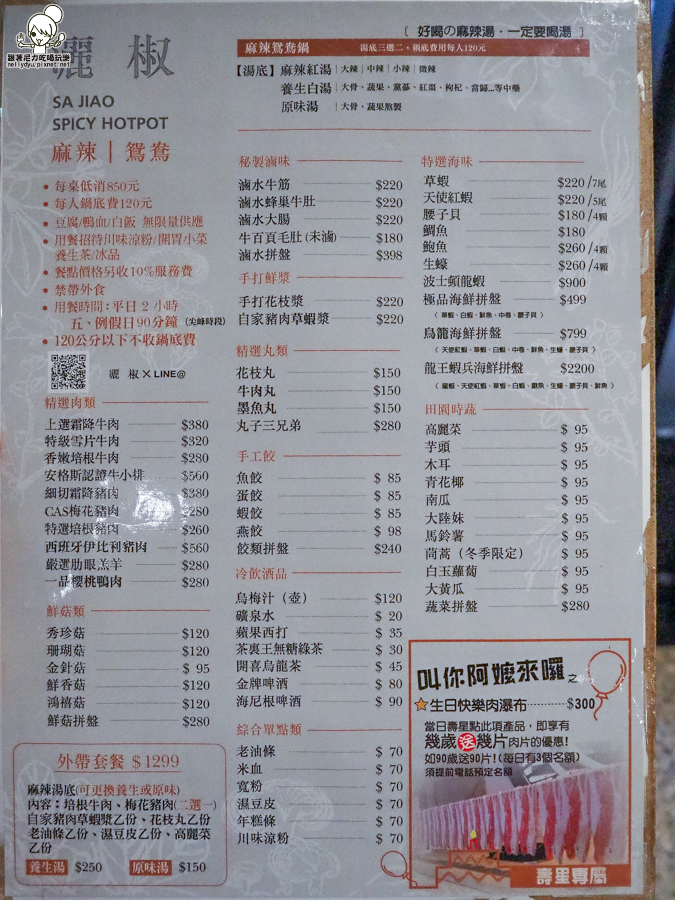 跟著尼力吃喝玩樂
nellydyu.pixnet.net
灑 椒
SA JIAO
SPICY HOTPOT
麻辣｜鴛鴦
• 每桌低消850元
• 每人鍋底費120元
• 豆腐/鴨血/白飯 無限量供應
• 用餐招待川味涼粉/開胃小菜
養生茶/冰品
• 餐點價格另收10%服務費
• 禁帶外食
• 用餐時間:平日 2 小時
五、例假日90分鐘 (尖峰時段)
• 120公分以下不收鍋底費
灑 椒 X LINE@
精選肉類
上選霜降牛肉 $380
特級雪片牛肉 $320
香嫩培根牛肉 $280
安格斯認證牛小排 $560
細切霜降豬肉 $380
CAS梅花豬肉 $280
特選培根豬肉 $260
西班牙伊比利豬肉 $560
嚴選肋眼羔羊 $280
一品櫻桃鴨肉 $280
鮮菇類
秀珍菇 $120
珊瑚菇 $120
金針菇 $ 95
鮮香菇 $120
鴻禧菇 $120
鮮菇拼盤 $280
外帶套餐 $1299
麻辣湯底(可更換養生或原味)
內容：培根牛肉、梅花豬肉(二選一)
自家豬肉草蝦漿乙份、花枝丸乙份
老油條乙份、濕豆皮乙份、高麗菜
乙份
養生湯 $250 原味湯 $150
〔 好喝の麻辣湯．一定要喝湯 〕
麻辣鴛鴦鍋 湯底三選二、鍋底費用每人120元
【湯底】麻辣紅湯｜大辣｜中辣｜小辣｜微辣
養生白湯｜大骨、蔬果、黨蔘、紅棗、枸杞、當歸...等中藥
原味湯｜大骨、蔬果熬製
秘製滷味
滷水牛筋 $220
滷水蜂巢牛肚 $220
滷水大腸 $220
牛百頁毛肚(未滷) $180
滷水拼盤 $398
手打鮮漿
手打花枝漿 $220
自家豬肉草蝦漿 $220
精選丸類
花枝丸 $150
牛肉丸 $150
墨魚丸 $150
丸子三兄弟 $280
手工餃
魚餃 $ 85
蛋餃 $ 85
蝦餃 $ 85
燕餃 $ 98
餃類拼盤 $240
冷飲酒品
烏梅汁（壺） $120
礦泉水 $ 20
蘋果西打 $ 35
茶裏王無糖綠茶 $ 30
開喜烏龍茶 $ 45
金牌啤酒 $ 80
海尼根啤酒 $ 90
綜合單點類
老油條 $ 70
米血 $ 70
寬粉 $ 70
濕豆皮 $ 70
年糕條 $ 70
川味涼粉 $ 70
特選海味
草蝦 $220 /7尾
天使紅蝦 $220 /5尾
腰子貝 $180 /4顆
鯛魚 $180
鮑魚 $260 /4顆
生蠔 $260 /4顆
波士頓龍蝦 $900
極品海鮮拼盤 $499
（ 草蝦、白蝦、鯛魚、中卷、腰子貝 ）
鳥籠海鮮拼盤 $799
（ 天使紅蝦、草蝦、白蝦、中卷、鯛魚、生蠔、腰子貝 ）
龍王蝦兵海鮮拼盤 $2200
（ 龍蝦、天使紅蝦、草蝦、白蝦、鮑魚、生蠔、腰子貝、鯛魚 ）
田園時蔬
高麗菜 $ 95
芋頭 $ 95
木耳 $ 95
青花椰 $ 95
南瓜 $ 95
大陸妹 $ 95
馬鈴薯 $ 95
茼蒿（冬季限定） $ 95
白玉蘿蔔 $ 95
大黃瓜 $ 95
蔬菜拼盤 $280
叫你阿嬤來囉之
生日快樂肉瀑布 $300
當日壽星點此項產品，即享有
幾歲送幾片肉片的優惠!
如90歲送90片!(每日有3個名額)
須提前電話預定名額
壽星專屬